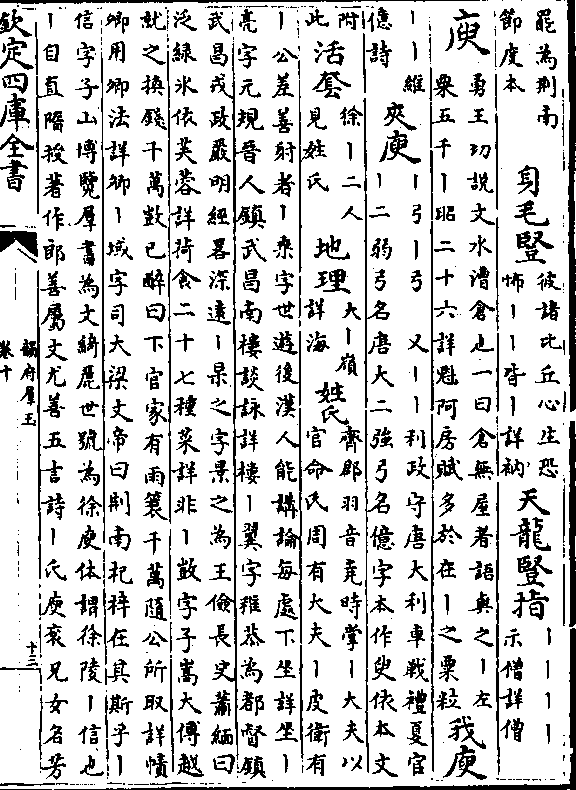 罷為荆南
節度本
身毛豎
彼諸比丘心生恐
怖丨丨皆丨詳衲
天龍豎指
丨丨丨丨
示僧詳僧
庾
勇王切說文水漕倉也一曰倉無屋者語與之丨左
粟五千丨昭二十六詳魁阿房賦多於在丨之粟粒
我庾
丨丨維
億詩
夾庾
丨弓丨弓
丨二弱弓名唐大二強弓名億字本作㬰依本文
又丨丨利政守唐大利車戰禮夏官
附
此
活套
徐丨二人
見姓氏
地理
大丨嶺
詳海
姓氏
齊郡羽音堯時掌丨大夫以
官命氏周有大夫丨皮衛有
丨公差善射者丨乘字世遊後漢人能講論每處下坐詳坐丨
亮字元規晉人鎮武昌南樓談詠詳樓丨翼字稚恭為都督鎮
武昌戎政嚴明經畧深遠丨杲之字景之為王儉長史蕭緬曰
泛緑水依芙蓉詳荷食二十七種菜詳非丨敳字子嵩大傅越
就之換錢千萬敳已醉曰下官家有兩簑千萬隨公所取詳幘
卿用卿法詳卿丨域字司大梁文帝曰荆南杞梓在其斯乎丨
信字子山博覽羣書為文綺麗世號為徐庾体謂徐陵丨信也
丨自直隋授著作郎善屬文尤善五言詩丨氏庾衮兄女名芳
欽定四庫全書
韻府羣玉
卷十
十三